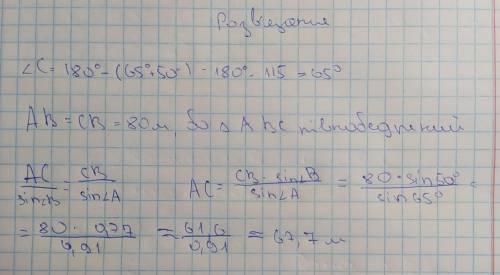 Розвʼязання
∠C = 180° - (65° + 50°) - 180° - 115 = 65°
AB = CB = 80 м, бо △ ABC рівнобедрений
AC/sin∠B = CB/sin∠A   AC = CB · sin∠B/sin∠A = 80 · sin50°/sin65° =
= 80 · 0,77/0,91 = 61,6/0,91 = 67,7 м